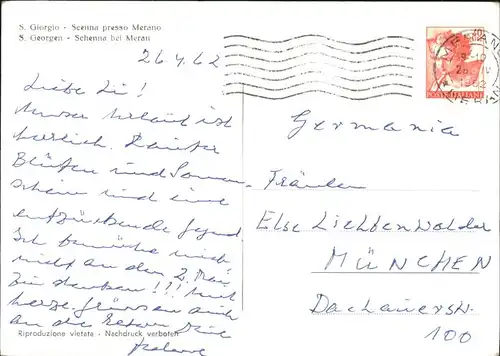 S. Giorgio - Scenna presso Merano
S. Georgen - Schenna bei Meran
26.4.62
Liebe Li!
Unser Urlaub ist
herrlich. Lauter
Blüten und Sonnen-
schein und eine
entzückende Gegend.
Ich bemühe mich
nicht an den 2. Mai
zu denken!!! Mit
herzl. Grüssen auch
an die Eltern
Riproduzione vietata - Nachdruck verboten
POSTE ITALIANE
MERANO
1962
Germania
Fräulein
Else Lichtenwalder
MÜNCHEN
Dachauerstr.
100